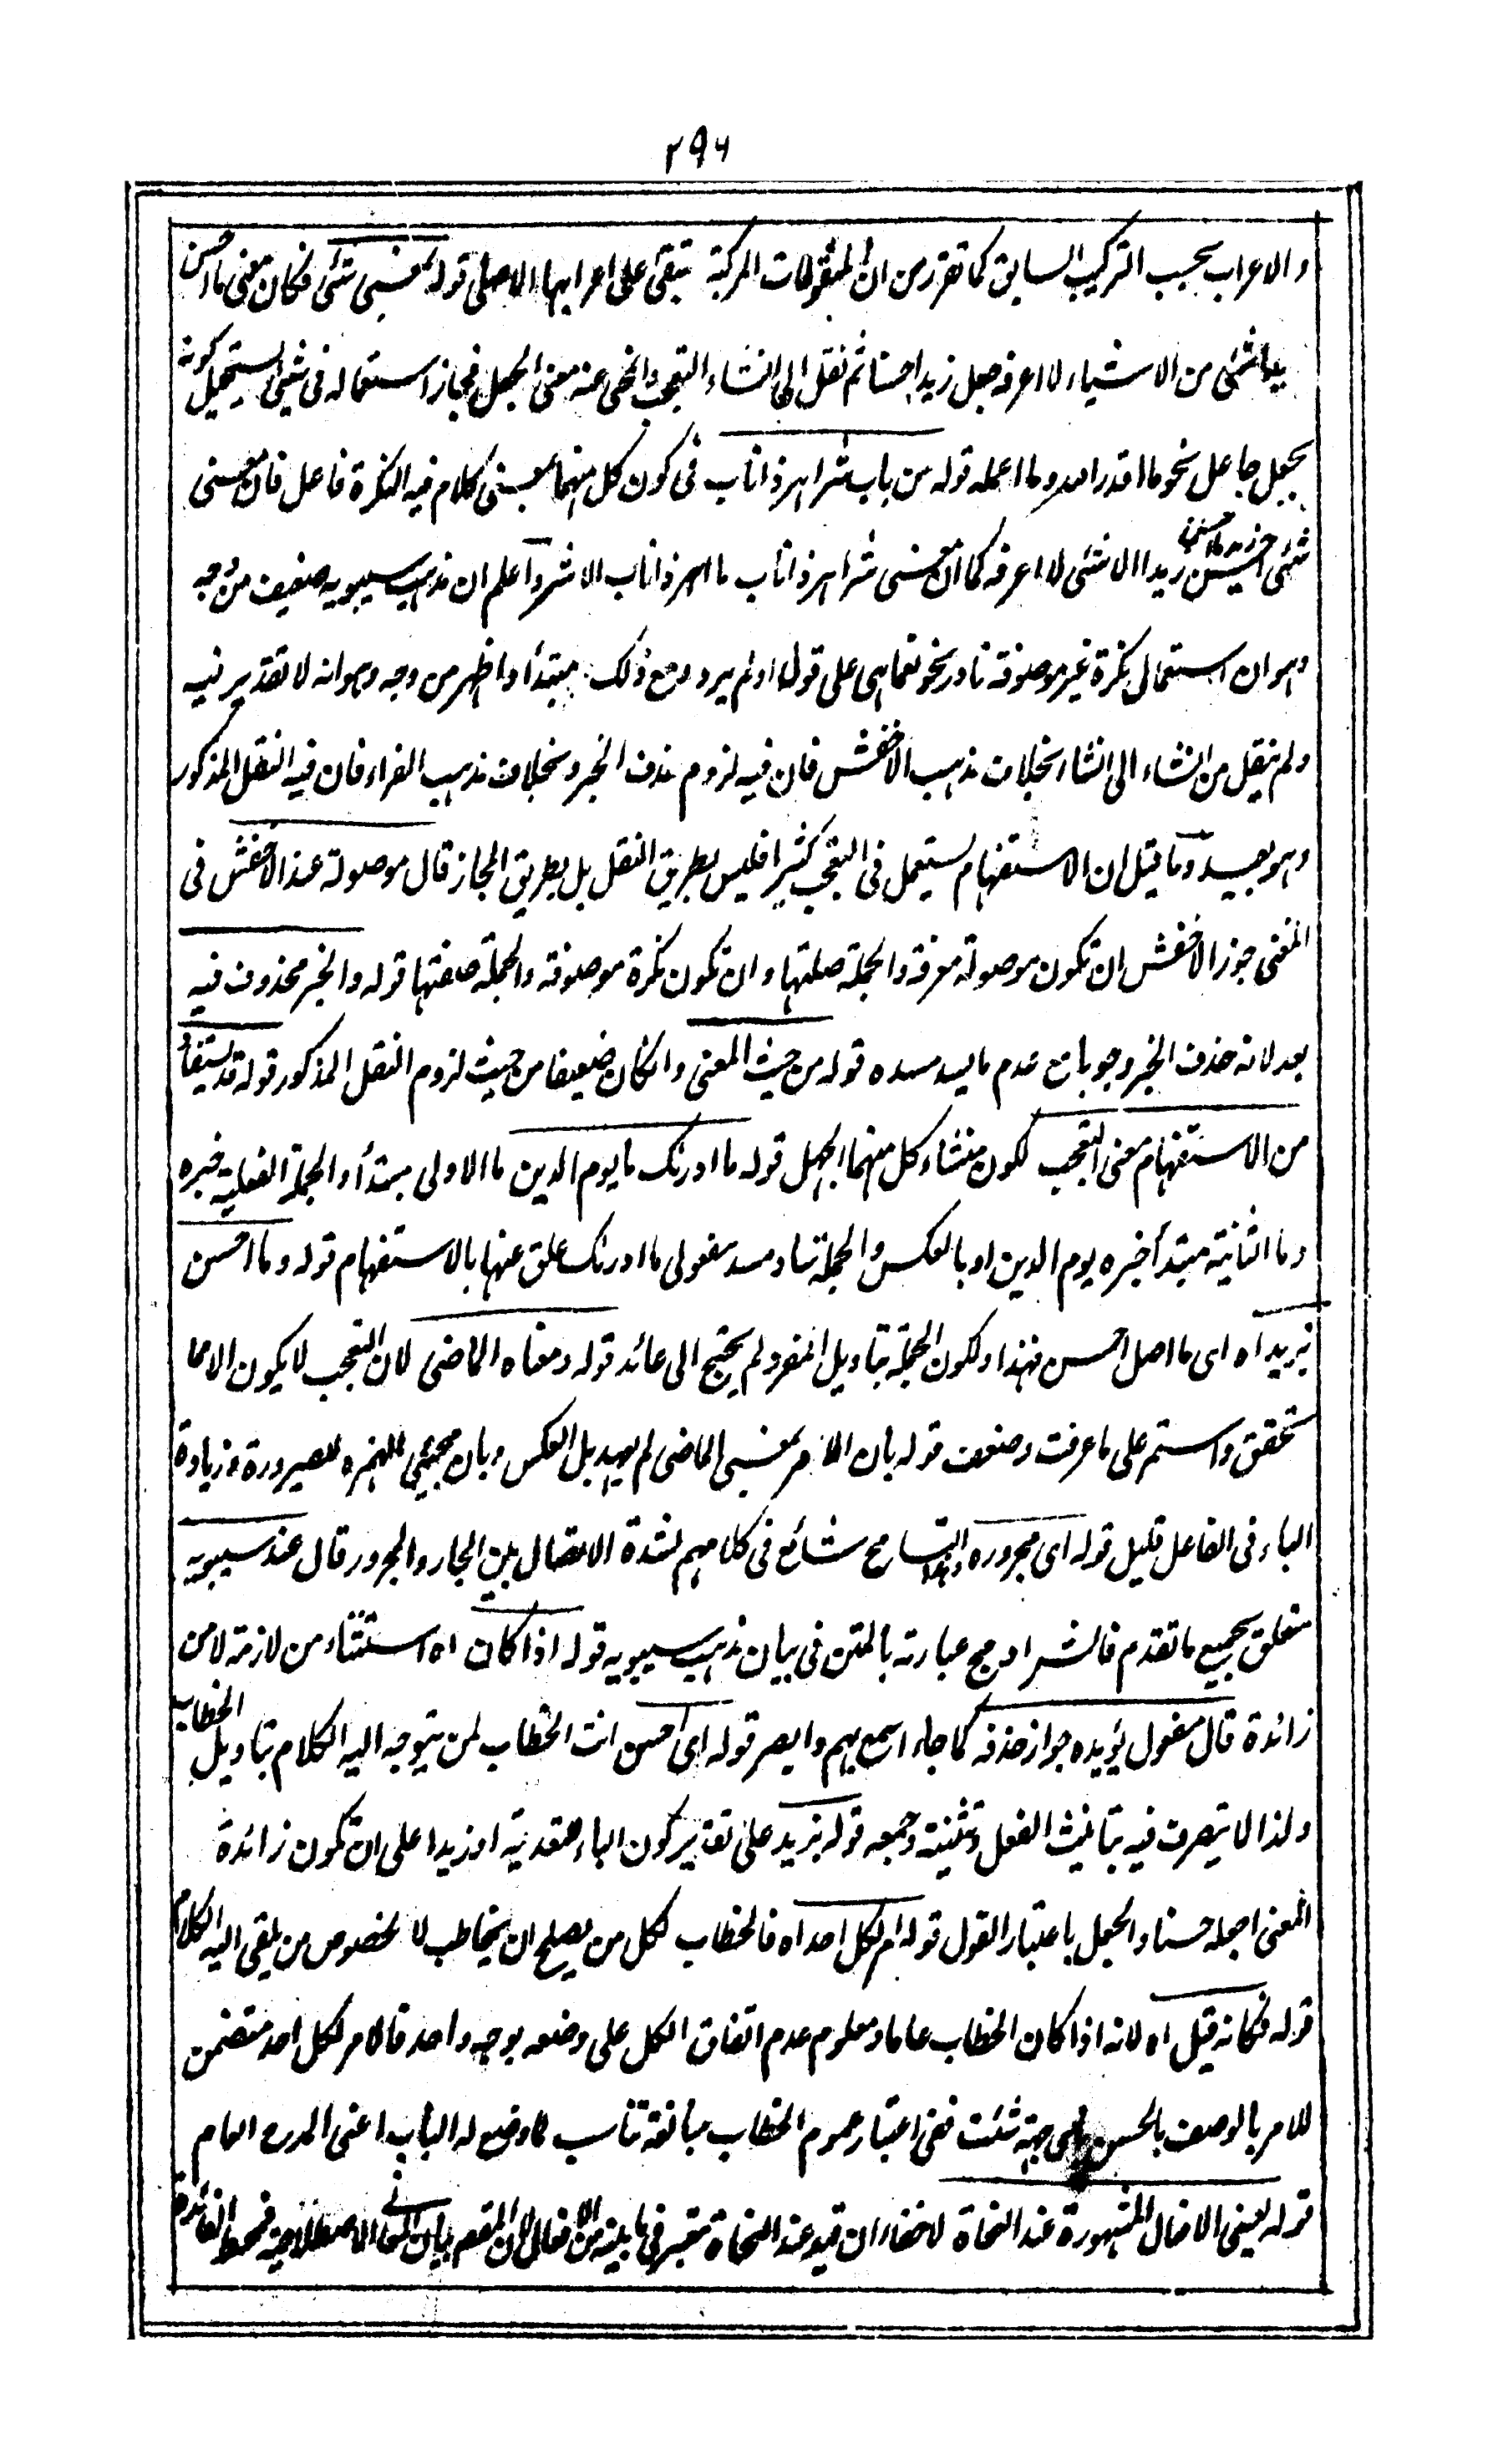 ٢٩٦
والاعراب بحسب التركيب السابق كما تقرر من ان المنقولات المركبة تبقى على اعرابها الاصلى قوله بمعنى شئ فكان معنى ما احسن
زيدا شئ من الاشياء لا اعرفه جعل زيدا حسنا ثم نقل الى انشاء التعجب وانمحى عنه معنى الجعل فجاز استعماله فى شئ يستحيل كونه
بجعل جاعل نحو ما اقدر الله وما اعلمه قوله من باب شر اهر ذا ناب فى كون كل منهما بمعنى كلام فيه النكرة فاعل فان معنى
شئ احسن زيدا الا شئ لا اعرفه كما ان معنى شر اهر ذا ناب ما اهر ذا ناب الا شر واعلم ان مذهب سيبويه ضعيف من وجه
وهو ان استعمال نكرة غير موصوفة نادر نحو نعما هى على قول او لم يرد مع ذلك مبتدأ واظهر من وجه وهو انه لا تقدير فيه
ولم ينقل من انشاء الى انشاء بخلاف مذهب الاخفش فان فيه لزوم حذف الخبر وبخلاف مذهب الفراء فان فيه النقل المذكور
وهو بعيد وما قيل ان الاستفهام يستعمل فى التعجب كثيرا فليس بطريق النقل بل بطريق المجاز قال موصولة عند الاخفش فى
المغنى جوز الاخفش ان تكون موصولة معرفة والجملة صلتها وان تكون نكرة موصوفة والجملة صفتها قوله والخبر محذوف فيه
بعد لانه حذف الخبر وجوبا مع عدم ما يسد مسده قوله من حيث المعنى وان كان ضعيفا من حيث لزوم النقل المذكور قوله قد يستفاد
من الاستفهام معنى التعجب لكون منشاء كل منهما الجهل قوله ما ادرٰك ما يوم الدين ما الاولى مبتدأ والجملة الفعلية خبره
وما الثانية مبتدأ خبره يوم الدين او بالعكس والجملة ساد مسد مفعولى ما ادرٰك علق عنها بالاستفهام قوله وما احسن
بزيد اه اى ما اصل احسن فهذا ولكون الجملة بتاويل المفرد لم يحتج الى عائد قوله ومعناه الماضى لان التعجب لا يكون الا مما
تحقق واستمر على ما عرفت وضعف قوله بان الامر بمعنى الماضى لم يعهد بل العكس وبان مجيئ الهمزه للصيرورة وزيادة
الباء فى الفاعل قليل قوله اى مجروره وهذا التسامح شائع فى كلامهم لشدة الاتصال بين الجار والمجرور قال عند سيبويه
متعلق بجميع ما تقدم فالشر ادمج عبارته بالمتن فى بيان مذهب سيبويه قوله اذا كان اه استثناء من لازمة لا من
زائدة قال مفعول يؤيده جواز حذفه كما جاء اسمع بهم وابصر قوله اى احسن انت الخطاب لمن يتوجه اليه الكلام بتاويل الخطاب
ولذا لا يتصرف فيه بتانيث الفعل وتثنيته وجمعه قوله بزيد على تقدير كون الباء للتعدية او زيدا على ان تكون زائدة
المعنى اجعله حسنا والجعل باعتبار القول قوله امر لكل احد اه فالخطاب لكل من يصلح ان يخاطب لا لخصوص من يلقى اليه الكلام
قوله فكانه قيل اه لانه اذا كان الخطاب عاما ومعلوم عدم اتفاق الكل على وضعه بوجه واحد فالامر لكل احد متضمن
للامر بالوصف بالحسن باى جهة شئت ففى اعتبار عموم الخطاب مبالغة تناسب لما وضع له الباب اعنى المدح العام
قوله يعنى الافعال المشهورة عند النحاة لا خفاء ان قيد عند النحاة معتبر فى ما بينه من الافعال لان المقصود بيان المعانى الاصطلاحية فمحط الفائدة